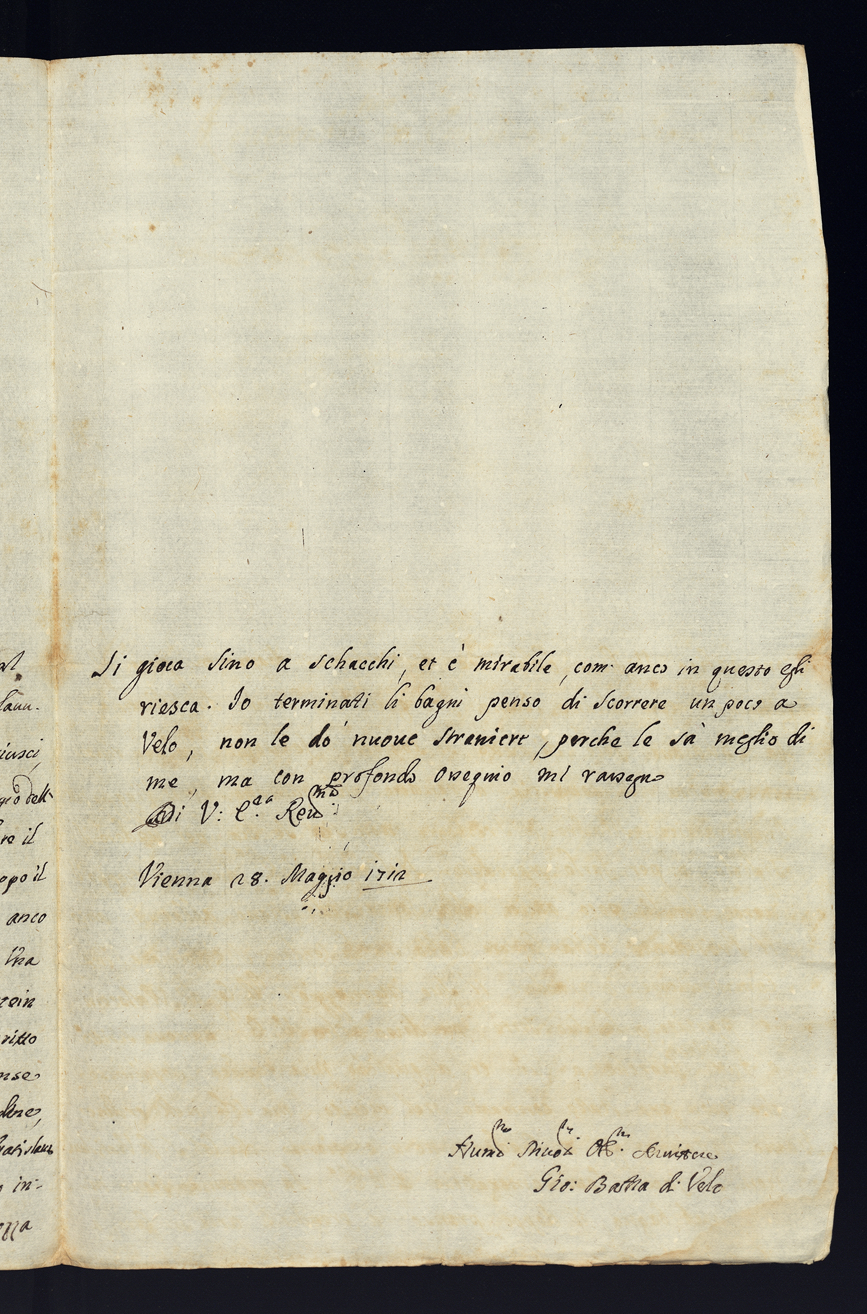 al
lauu.
iusci,
dell
re il
opo il
anco
Una
ritto
nse
dene,
in-
ezza
si gioca sino a schacchi, et è mirabile, com' anco in questo egli
riesca. Io terminati li bagni penso di scorrere un poco a
Velo, non le dò nuoue straniere, perche le sà meglio di
me, ma con profondo ossequio mi rassegno
Di V: E.za Reu.ma
Vienna 28. Maggio 1712
Hum.mo Diuot.mo Ob.mo Seruitore
Gio: Batta di Velo